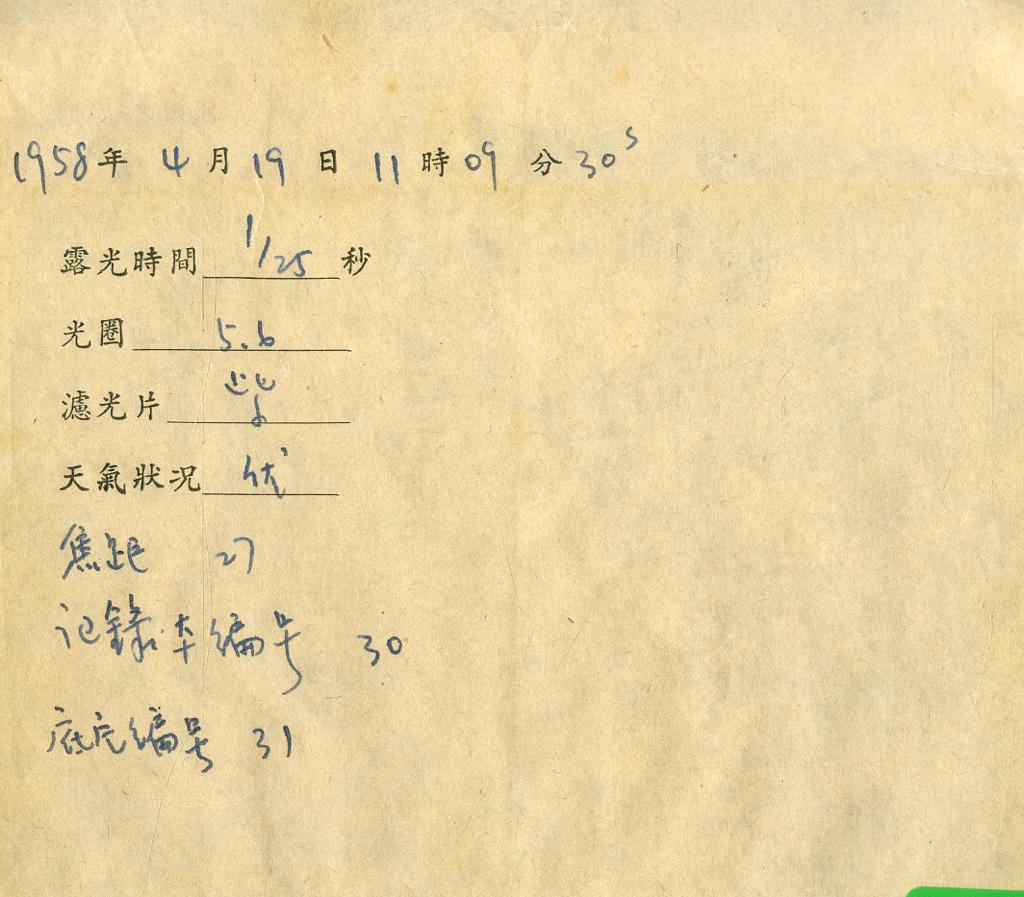 1958年 4月19日 11時09分30s
露光時間 1/25 秒
光圈 5.6
濾光片
天氣狀况 优
焦距 27
记錄本编号 30
底片编号 31